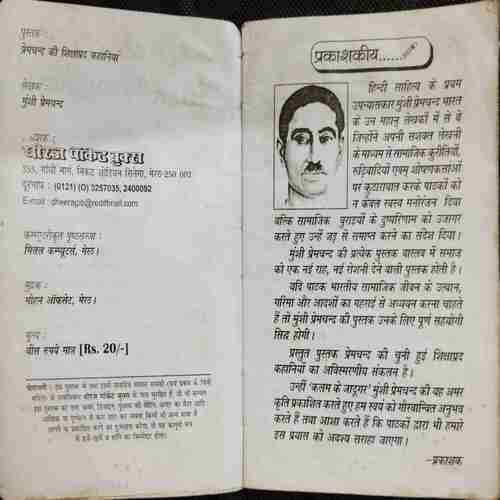 पुस्तक :
प्रेमचन्द की शिक्षाप्रद कहानियां
लेखक :
मुंशी प्रेमचन्द
प्रकाशक :
धीरज पॉकेट बुक्स
355, गांधी मार्ग, निकट ओडियन सिनेमा, मेरठ-250 002
दूरभाष : (0121) (O) 3257035, 2400092
E-mail : dheerapb@rediffmail.com
कम्प्यूटरीकृत पृष्ठसज्जा :
मित्तल कम्प्यूटर्स, मेरठ।
मुद्रक :
मोहन ऑफसेट, मेरठ।
मूल्य :
बीस रुपये मात्र [Rs. 20/-]
प्रकाशकीय......
हिन्दी साहित्य के प्रथम
उपन्यासकार मुंशी प्रेमचन्द भारत
के उन महान् लेखकों में से थे
जिन्होंने अपनी सशक्त लेखनी
के माध्यम से सामाजिक कुरीतियों,
रूढ़िवादियों एवम् शोषणकर्ताओं
पर कुठाराघात करके पाठकों को
न केवल स्वस्थ मनोरंजन दिया
बल्कि सामाजिक बुराइयों के दुष्परिणाम को उजागर
करते हुए उन्हें जड़ से समाप्त करने का संदेश दिया।
मुंशी प्रेमचन्द की प्रत्येक पुस्तक वास्तव में समाज
को एक नई राह, नई रोशनी देने वाली पुस्तक होती है।
यदि पाठक भारतीय सामाजिक जीवन के उत्थान,
गरिमा और आदर्शों का गहराई से अध्ययन करना चाहते
हैं तो मुंशी प्रेमचन्द की पुस्तक उनके लिए पूर्ण सहयोगी
सिद्ध होगी।
प्रस्तुत पुस्तक प्रेमचन्द की चुनी हुई शिक्षाप्रद
कहानियों का अविस्मरणीय संकलन है।
उन्हीं 'कलम के जादूगर' मुंशी प्रेमचन्द की यह अमर
कृति प्रकाशित करते हुए हम स्वयं को गौरवान्वित अनुभव
करते हैं तथा आशा करते हैं कि पाठकों द्वारा भी हमारे
इस प्रयास को अवश्य सराहा जाएगा।
–प्रकाशक